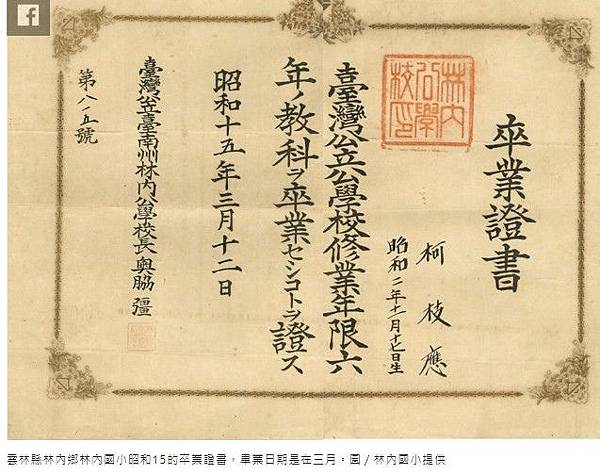 f
卒業證書
柯枝應
昭和二年十一月十七日生
林內
公學
校印
臺灣公立公學校修業年限六
年ノ教科ヲ卒業セシコトヲ證ス
昭和十五年三月十二日
臺灣公立臺南州林內公學校長奧脇 彊
第八一五號
雲林縣林內鄉林內國小昭和15的卒業證書，畢業日期是在三月。圖／林內國小提供